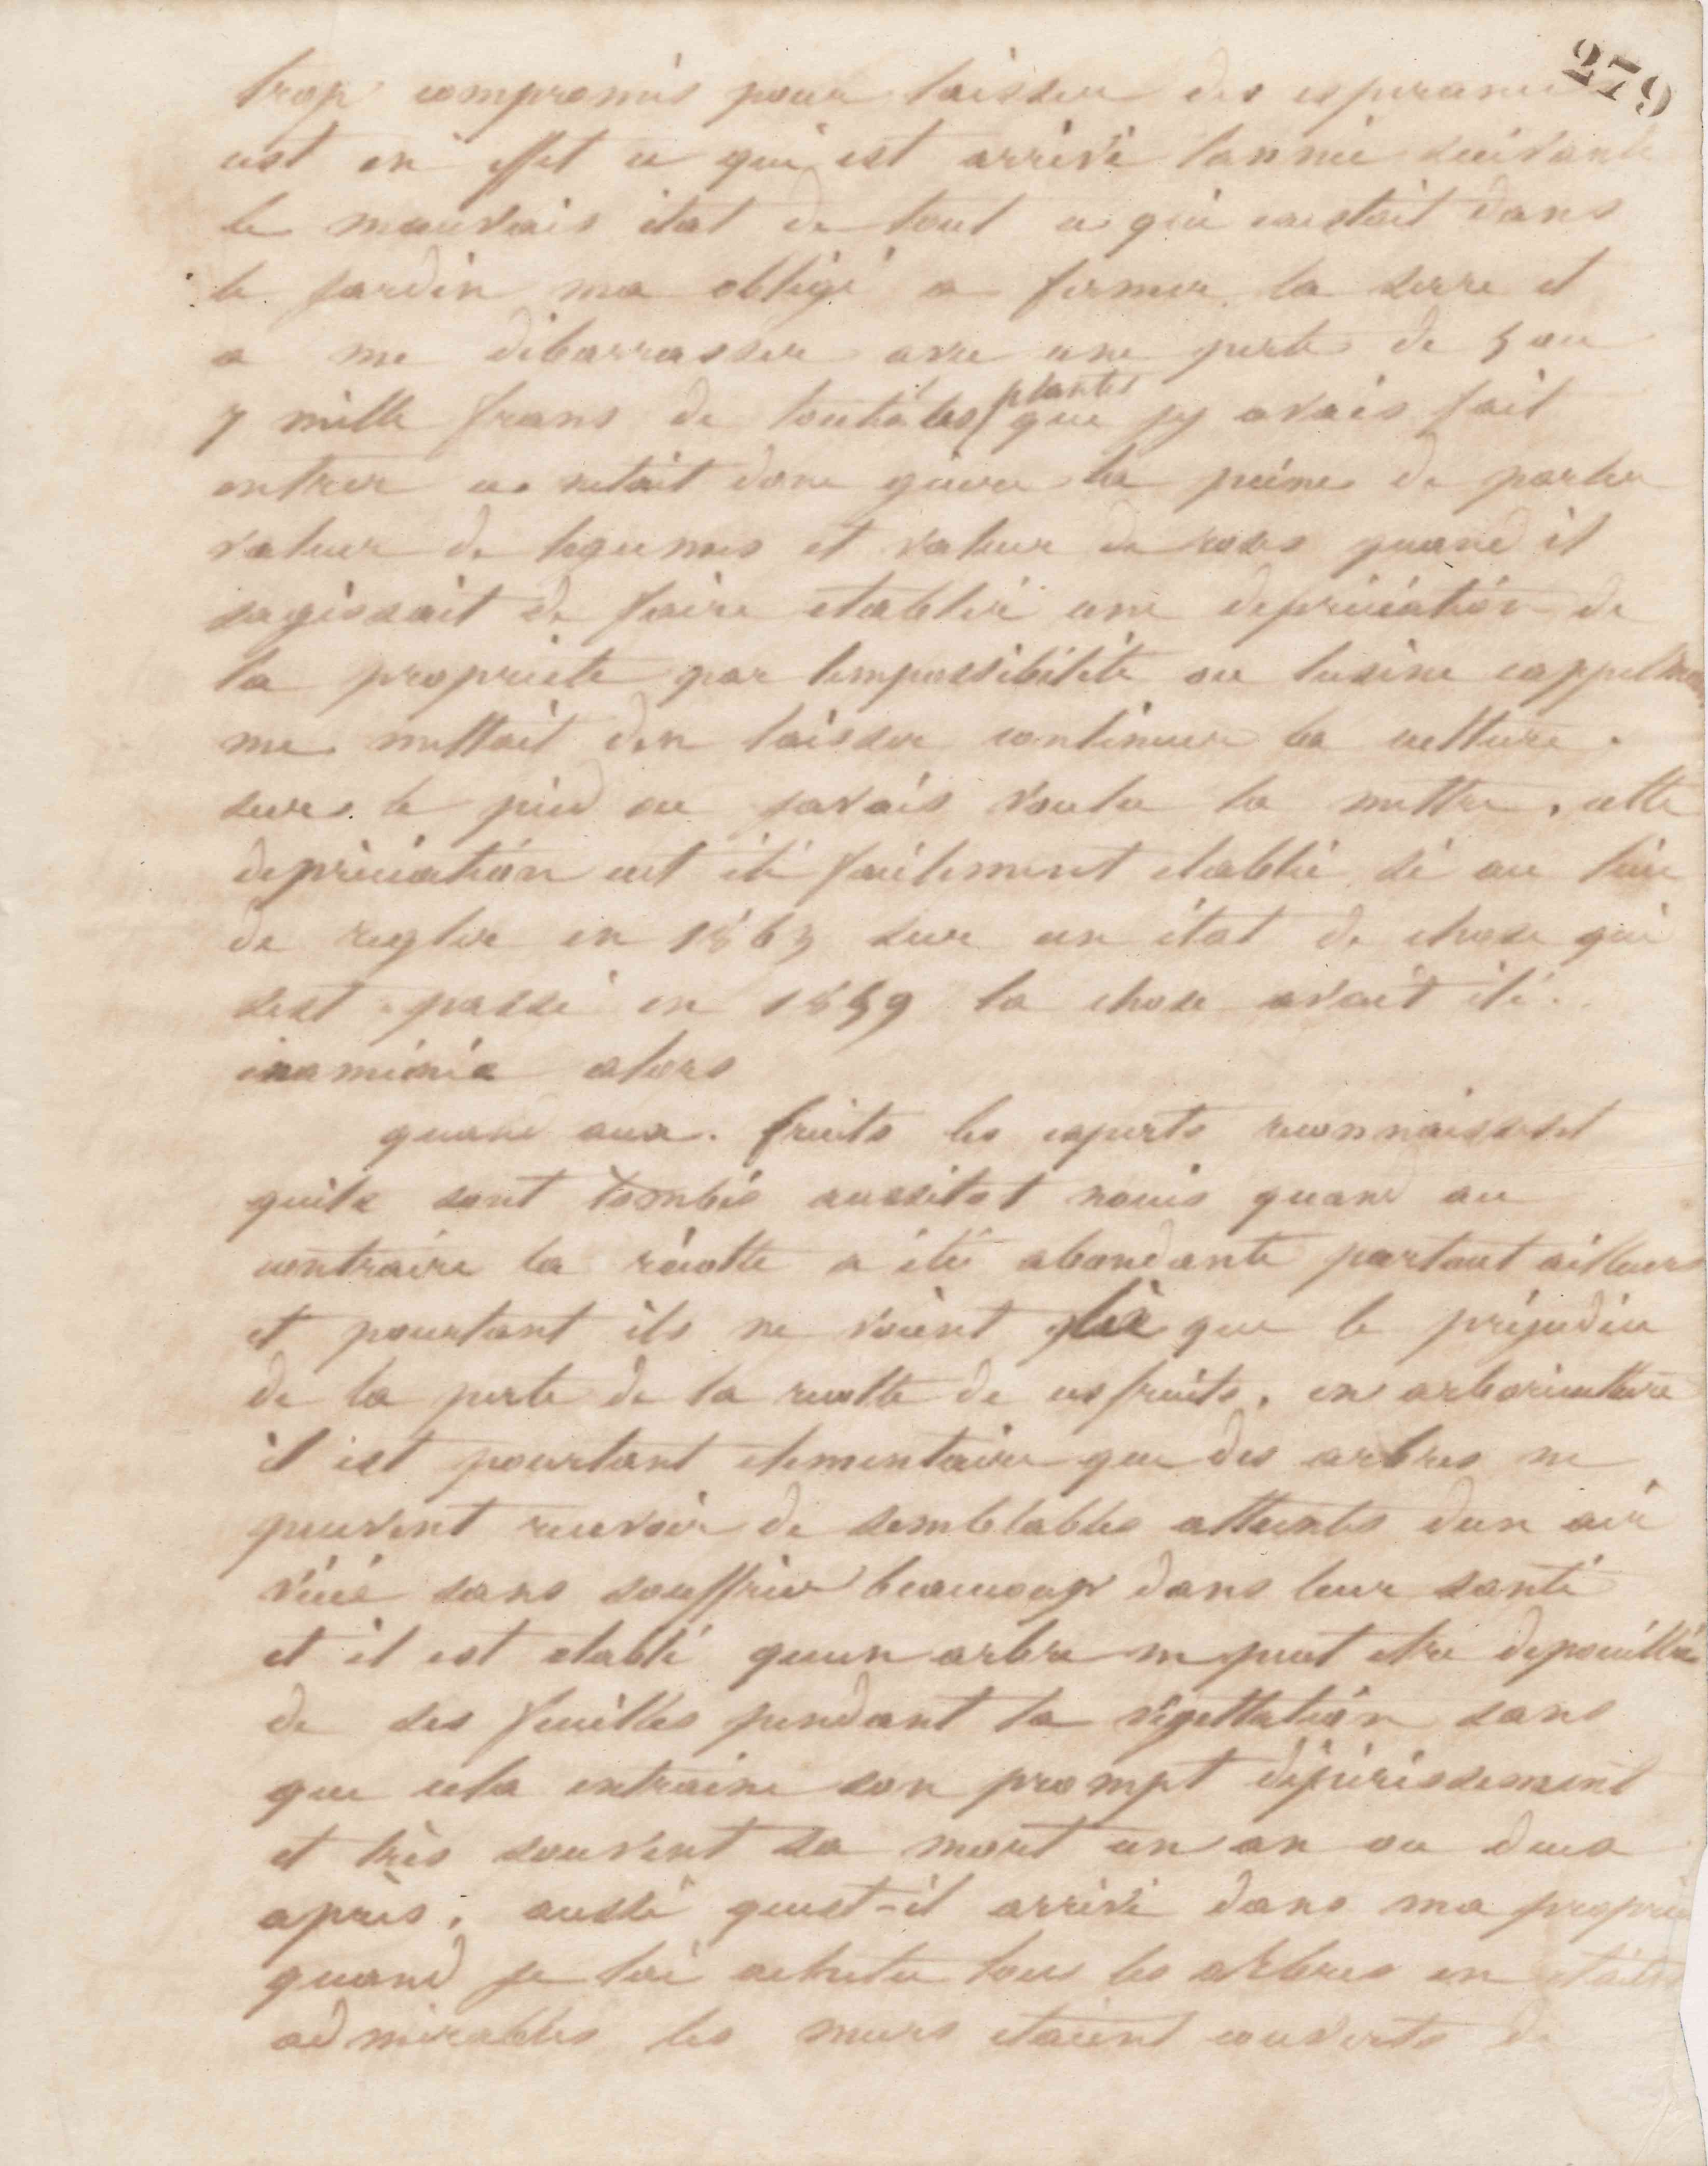 279
trop compromis pour laisser des esperances
cest en effet ce qui est arrivé lannée suivante
le mauvais état de tout ce qui existait dans
le jardin ma obligé a fermer la serre et
a me débarrasser avec une perte de 5 ou
7 mille frans de toutes les plantes que jy avais fait
entrer ce netait donc guère la peine de parler
valeur de legumes et valeur de roses quand il
sagissait de faire etablir une depréciation de
la propriete par limpossibilité ou lusine cappelman
me mettait den laisser continuer la culture
sur le pied ou javais voulu la mettre, cette
depréciation eut été facilement etablie si au lieu
de regler en 1863 sur un état de chose qui
sest passé en 1859 la chose avait été
examinée alors
quand aux fruits les experts reconnaissent
quils sont tombés aussitot noués quand au
contraire la récolte a été abondante partout ailleurs
et pourtant ils ne voient là que le préjudice
de la perte de la recolte de ces fruits, en arboriculture
il est pourtant elementaire que des arbres ne
peuvent recevoir de semblables atteintes dun air
vicié sans souffrir beaucoup dans leur santé
et il est etabli quun arbre ne peut etre depouillé
de ses feuilles pendant la végettation sans
que cela entraine son prompt dépérissement
et très souvent sa mort un an ou deux
après, aussi quest-il arrivé dans ma propriété
quand je lai achetée tous les arbres en étaient
admirables les murs étaient couverts de